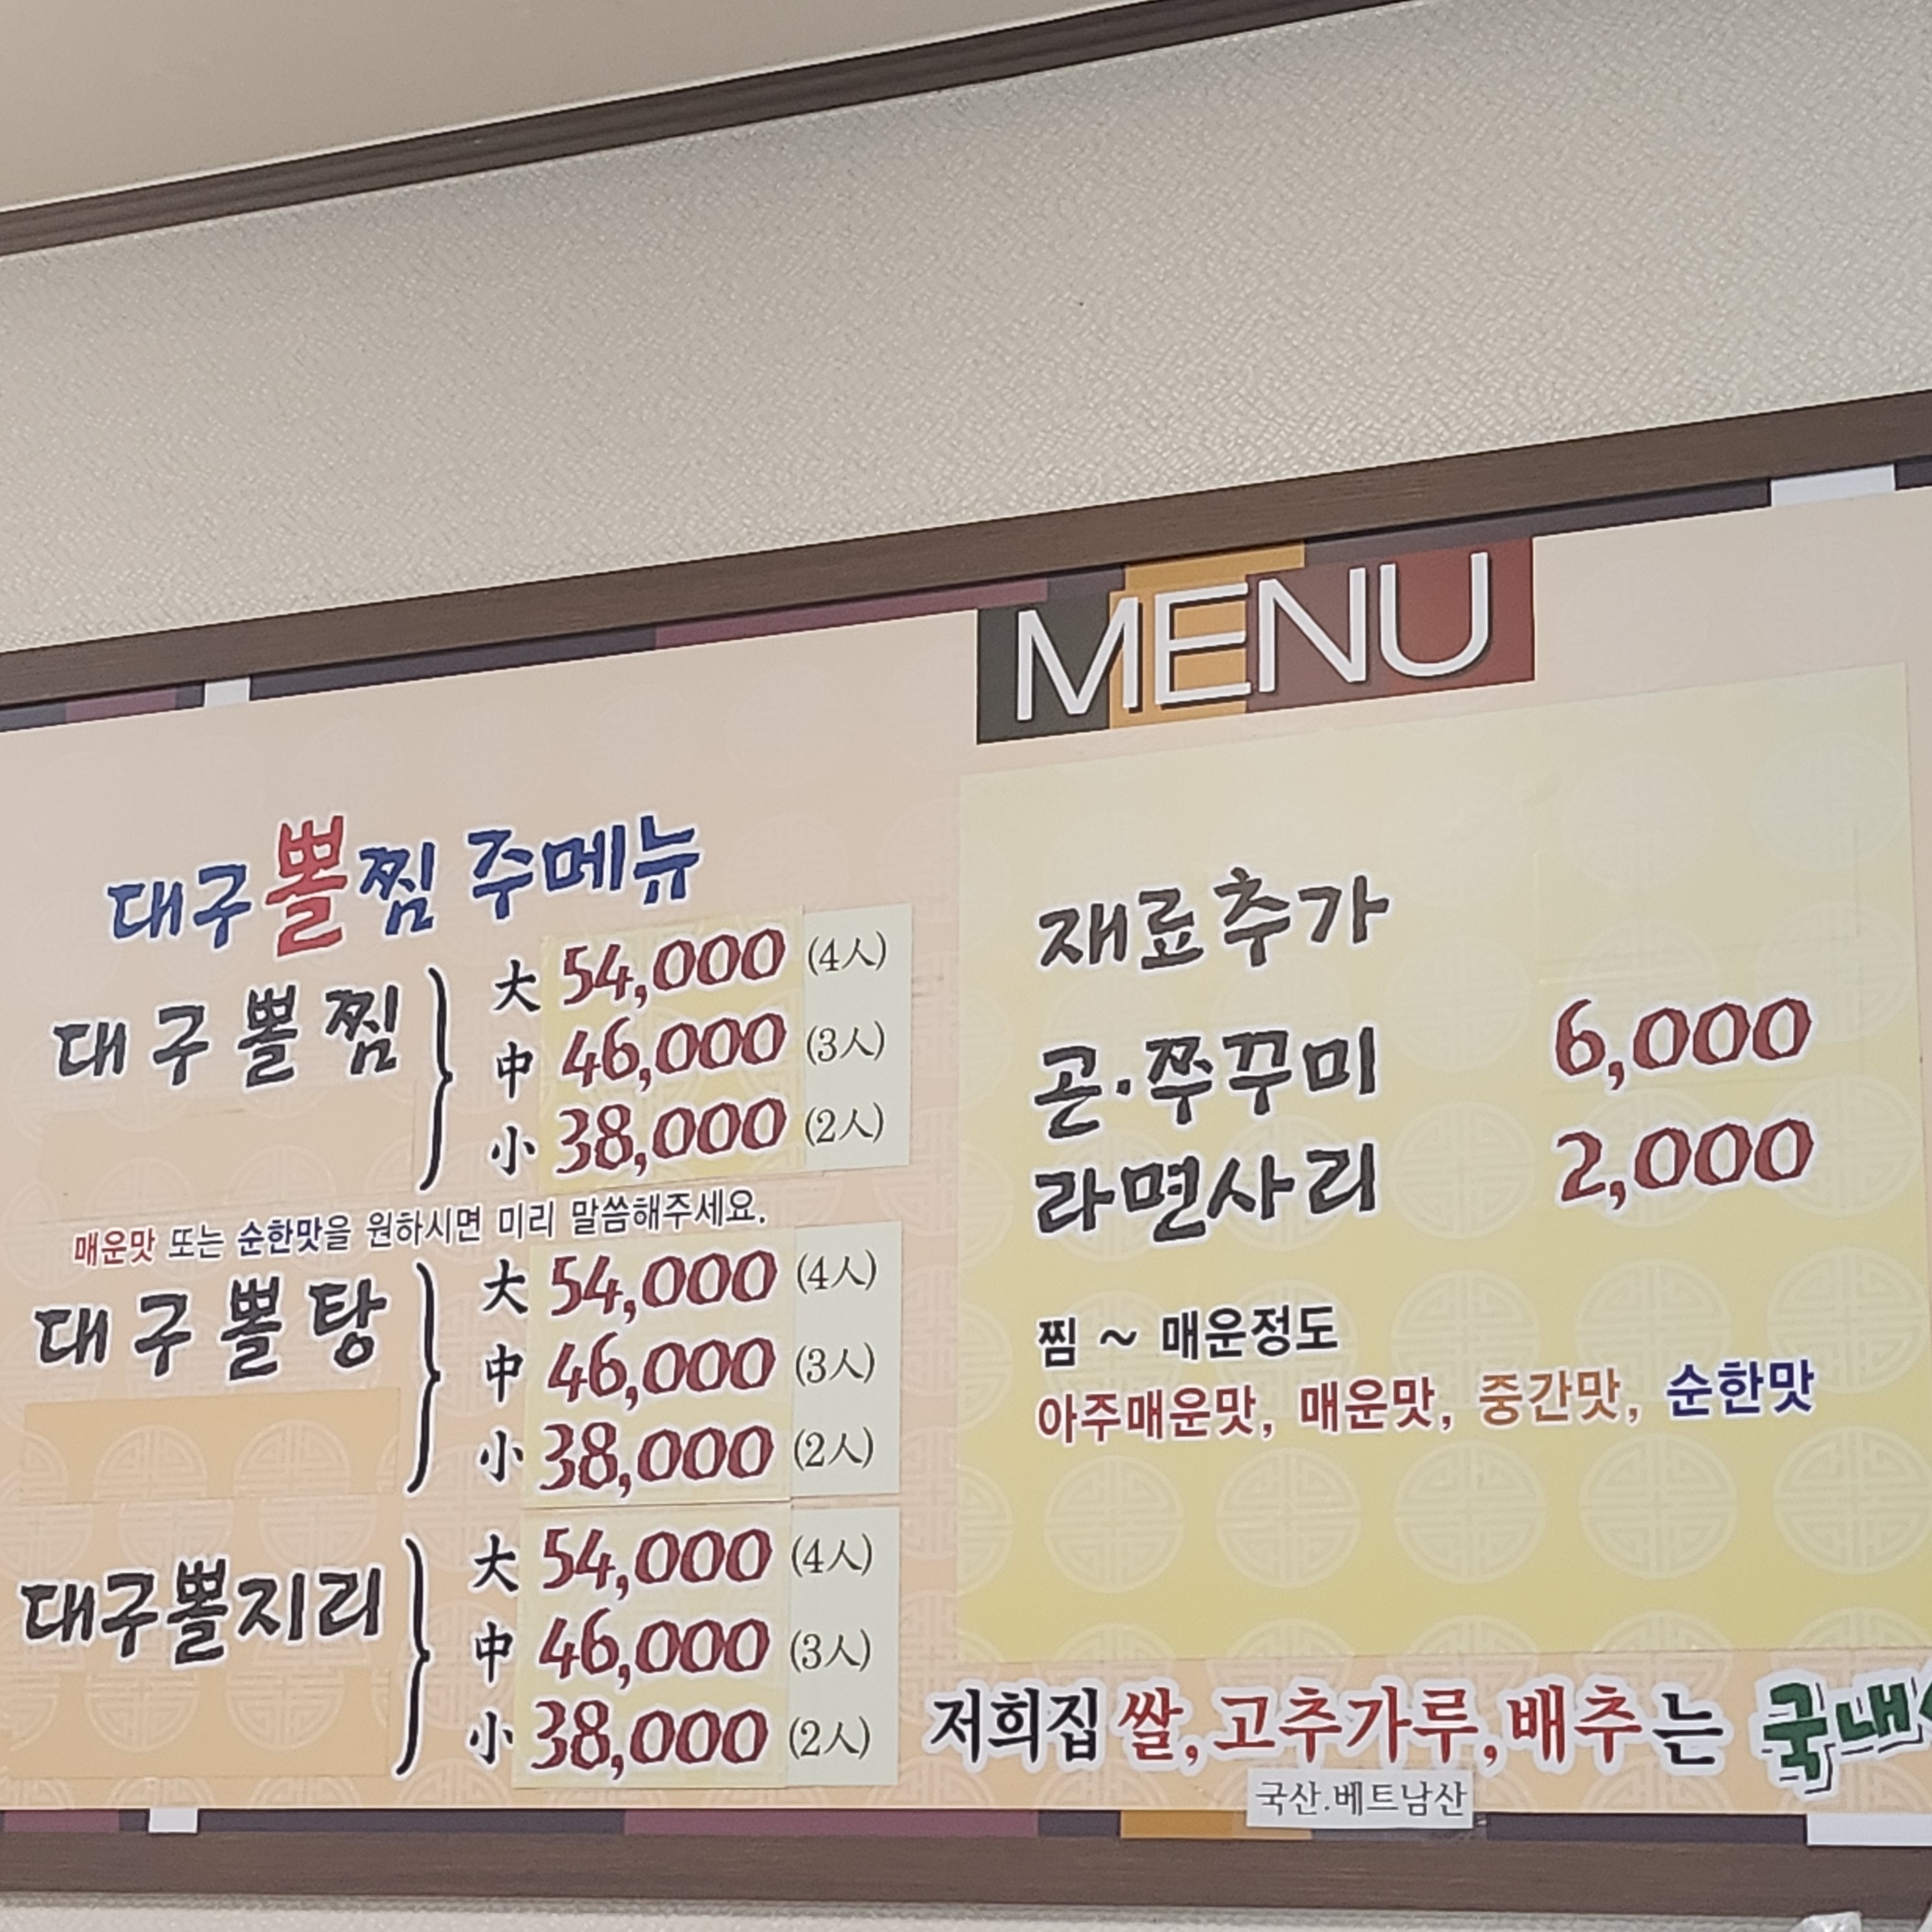 MENU
대구뽈찜 주메뉴
대구뽈찜
大 54,000 (4人)
中 46,000 (3人)
小 38,000 (2人)
매운맛 또는 순한맛을 원하시면 미리 말씀해주세요.
대구뽈탕
大 54,000 (4人)
中 46,000 (3人)
小 38,000 (2人)
대구뽈지리
大 54,000 (4人)
中 46,000 (3人)
小 38,000 (2人)
재료추가
곤·쭈꾸미 6,000
라면사리 2,000
찜 ~ 매운정도
아주매운맛, 매운맛, 중간맛, 순한맛
저희집 쌀,고추가루,배추는 국내
국산.베트남산